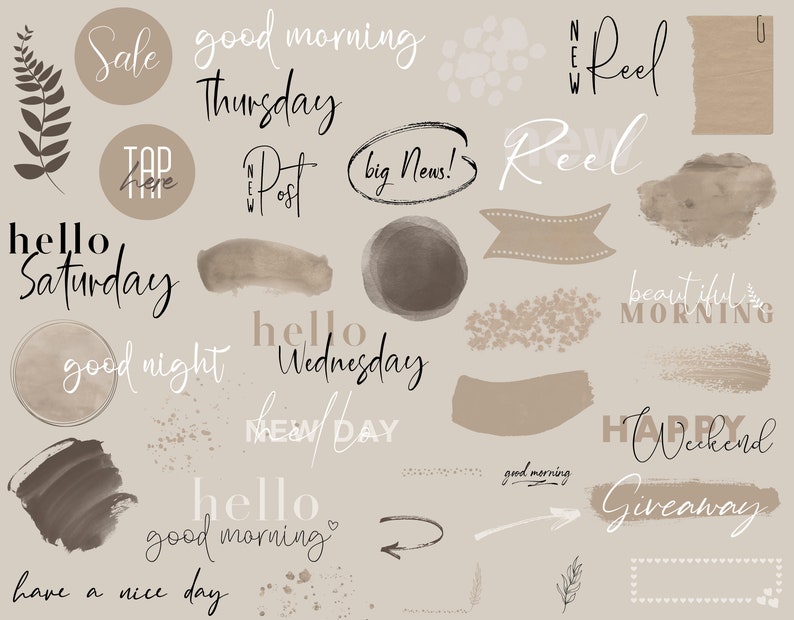 Sale
good morning
Thursday
NEW Reel
TAP
here
NEW Post
big News!
new
Reel
hello
Saturday
beautiful
MORNING
good night
hello
Wednesday
hello
NEW DAY
HAPPY
Weekend
good morning
hello
good morning
Giveaway
have a nice day